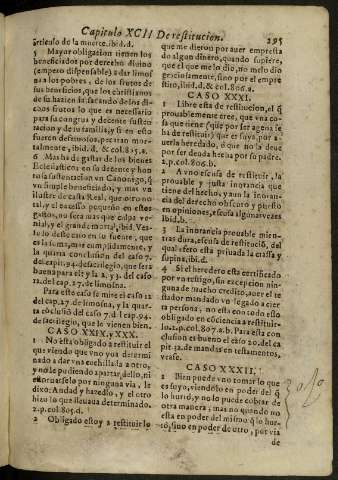 Capitulo XCII De restitucion. 295
articulo de la muerte. ibid. d.
5 Mayor obligacion tienen los
beneficiados por derecho diuino
(empero dispensable) a dar limos
na a los pobres, de los frutos de
sus beneficios, que los christianos
de su hazienda: sacando de los di-
chos frutos lo que es necessario
para su congrua y decente susten
tacion y de su familia, y si en esto
fuessen demasiados, pecaran mor-
talmente, ibid. d. & col. 815. a.
6 Mas ha de gastar de los bienes
Ecclesiasticos en su decente y hon
rosa sustentacion vn Canonigo, q̃
vn simple beneficiado, y mas vn
ilustre de casta Real, que otro no
tal, y el excesso pequeño en estos
gastos, no sera mas que culpa ve-
nial, y el grande mortal, ibid. Vea-
lo deste caso en la fuente, que
es la suma, mas cumplidamente, y
la quarta conclusion del caso 7.
del capit. 94. de sacrilegio, que sera
buena para el y la 2. y 3. del caso
12. del cap. 27. de limosna.
Para este caso se mire el caso 12
del cap. 27. de limosna, y la quar-
ta cõclusiõ del caso 7. del cap. 94.
de sacrilegio, que le vienen bien.
CASO XXIX. y XXX.
1 No esta obligado a restituir el
que viendo que vno yua determi
nado a dar vna cuchillada a otro,
y no le pudiendo apartar dello, ni
estoruarselo por ninguna via, le
dixo: Andad y hazedlo, y el otro
hizo lo que lleuaua determinado.
2. p. col. 805. d.
2 Obligado estoy a restituir lo
que me dieron por auer emprestado
do algun dinero, quando supiere,
que el que me lo dio, no me lo dio
graciosamente, sino por el empre
stito, ibid. d. & col. 806. a.
CASO XXXI.
1 Libre esta de restitucion, el q̃
prouablemente cree, que vna co-
sa que tiene (que por ser agena se
ha de restituir) que es suya, por a-
uerla heredado, o que no la deue
por ser deuda hecha por su padre.
2. p. col. 806. b.
2 Y no escusa de restituir, la
prouable y justa inorancia que
tiene del hecho, y aun la inorancia
del derecho obscuro y puesto
en opiniones, escusa algunas vezes
ibid. b.
3 La inorancia prouable mien-
tras dura, escusa de restituciõ, del
qual esseto esta priuada la crassa y
supina, ibi. d.
4 Si el heredero esta certificado
por vn testigo, sin excepcion nin-
guna de mucho credito, auer el te
stador mandado vn legado a cier
ta persona, no esta con todo esso
obligado en cõciencia a restituir-
lo. 2. p. col. 807. a. b. Para esta con
clusion es bueno el caso 20. del ca
pit. 32. de mandas en testamentos,
vease.
CASO XXXII.
1 Bien puede vno tomar lo que
es suyo, viendolo en poder del q̃
lo hurtò, y no lo puede cobrar de
otra manera, mas no quando no
esta en poder del mismo q̃ lo hur-
tò, sino en poder de otro, por via
de